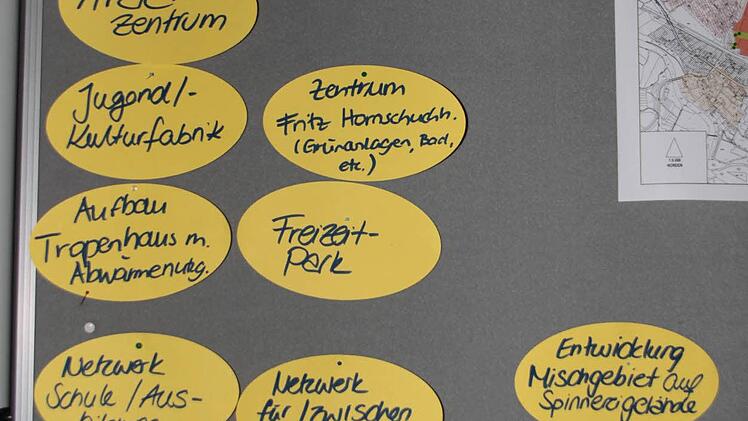 zentrum
Jugend/-
Kulturfabrik
Zentrum
Fritz Hornschuchh.
(Grünanlagen, Bad,
etc.)
Aufbau
Tropenhaus m.
Abwärmenutzg.
Freizeit-
Park
Netzwerk
Schule / Aus-
Netzwerk
für / zwischen
Entwicklung
Mischgebiet auf
Spinnereigelände
NORDEN